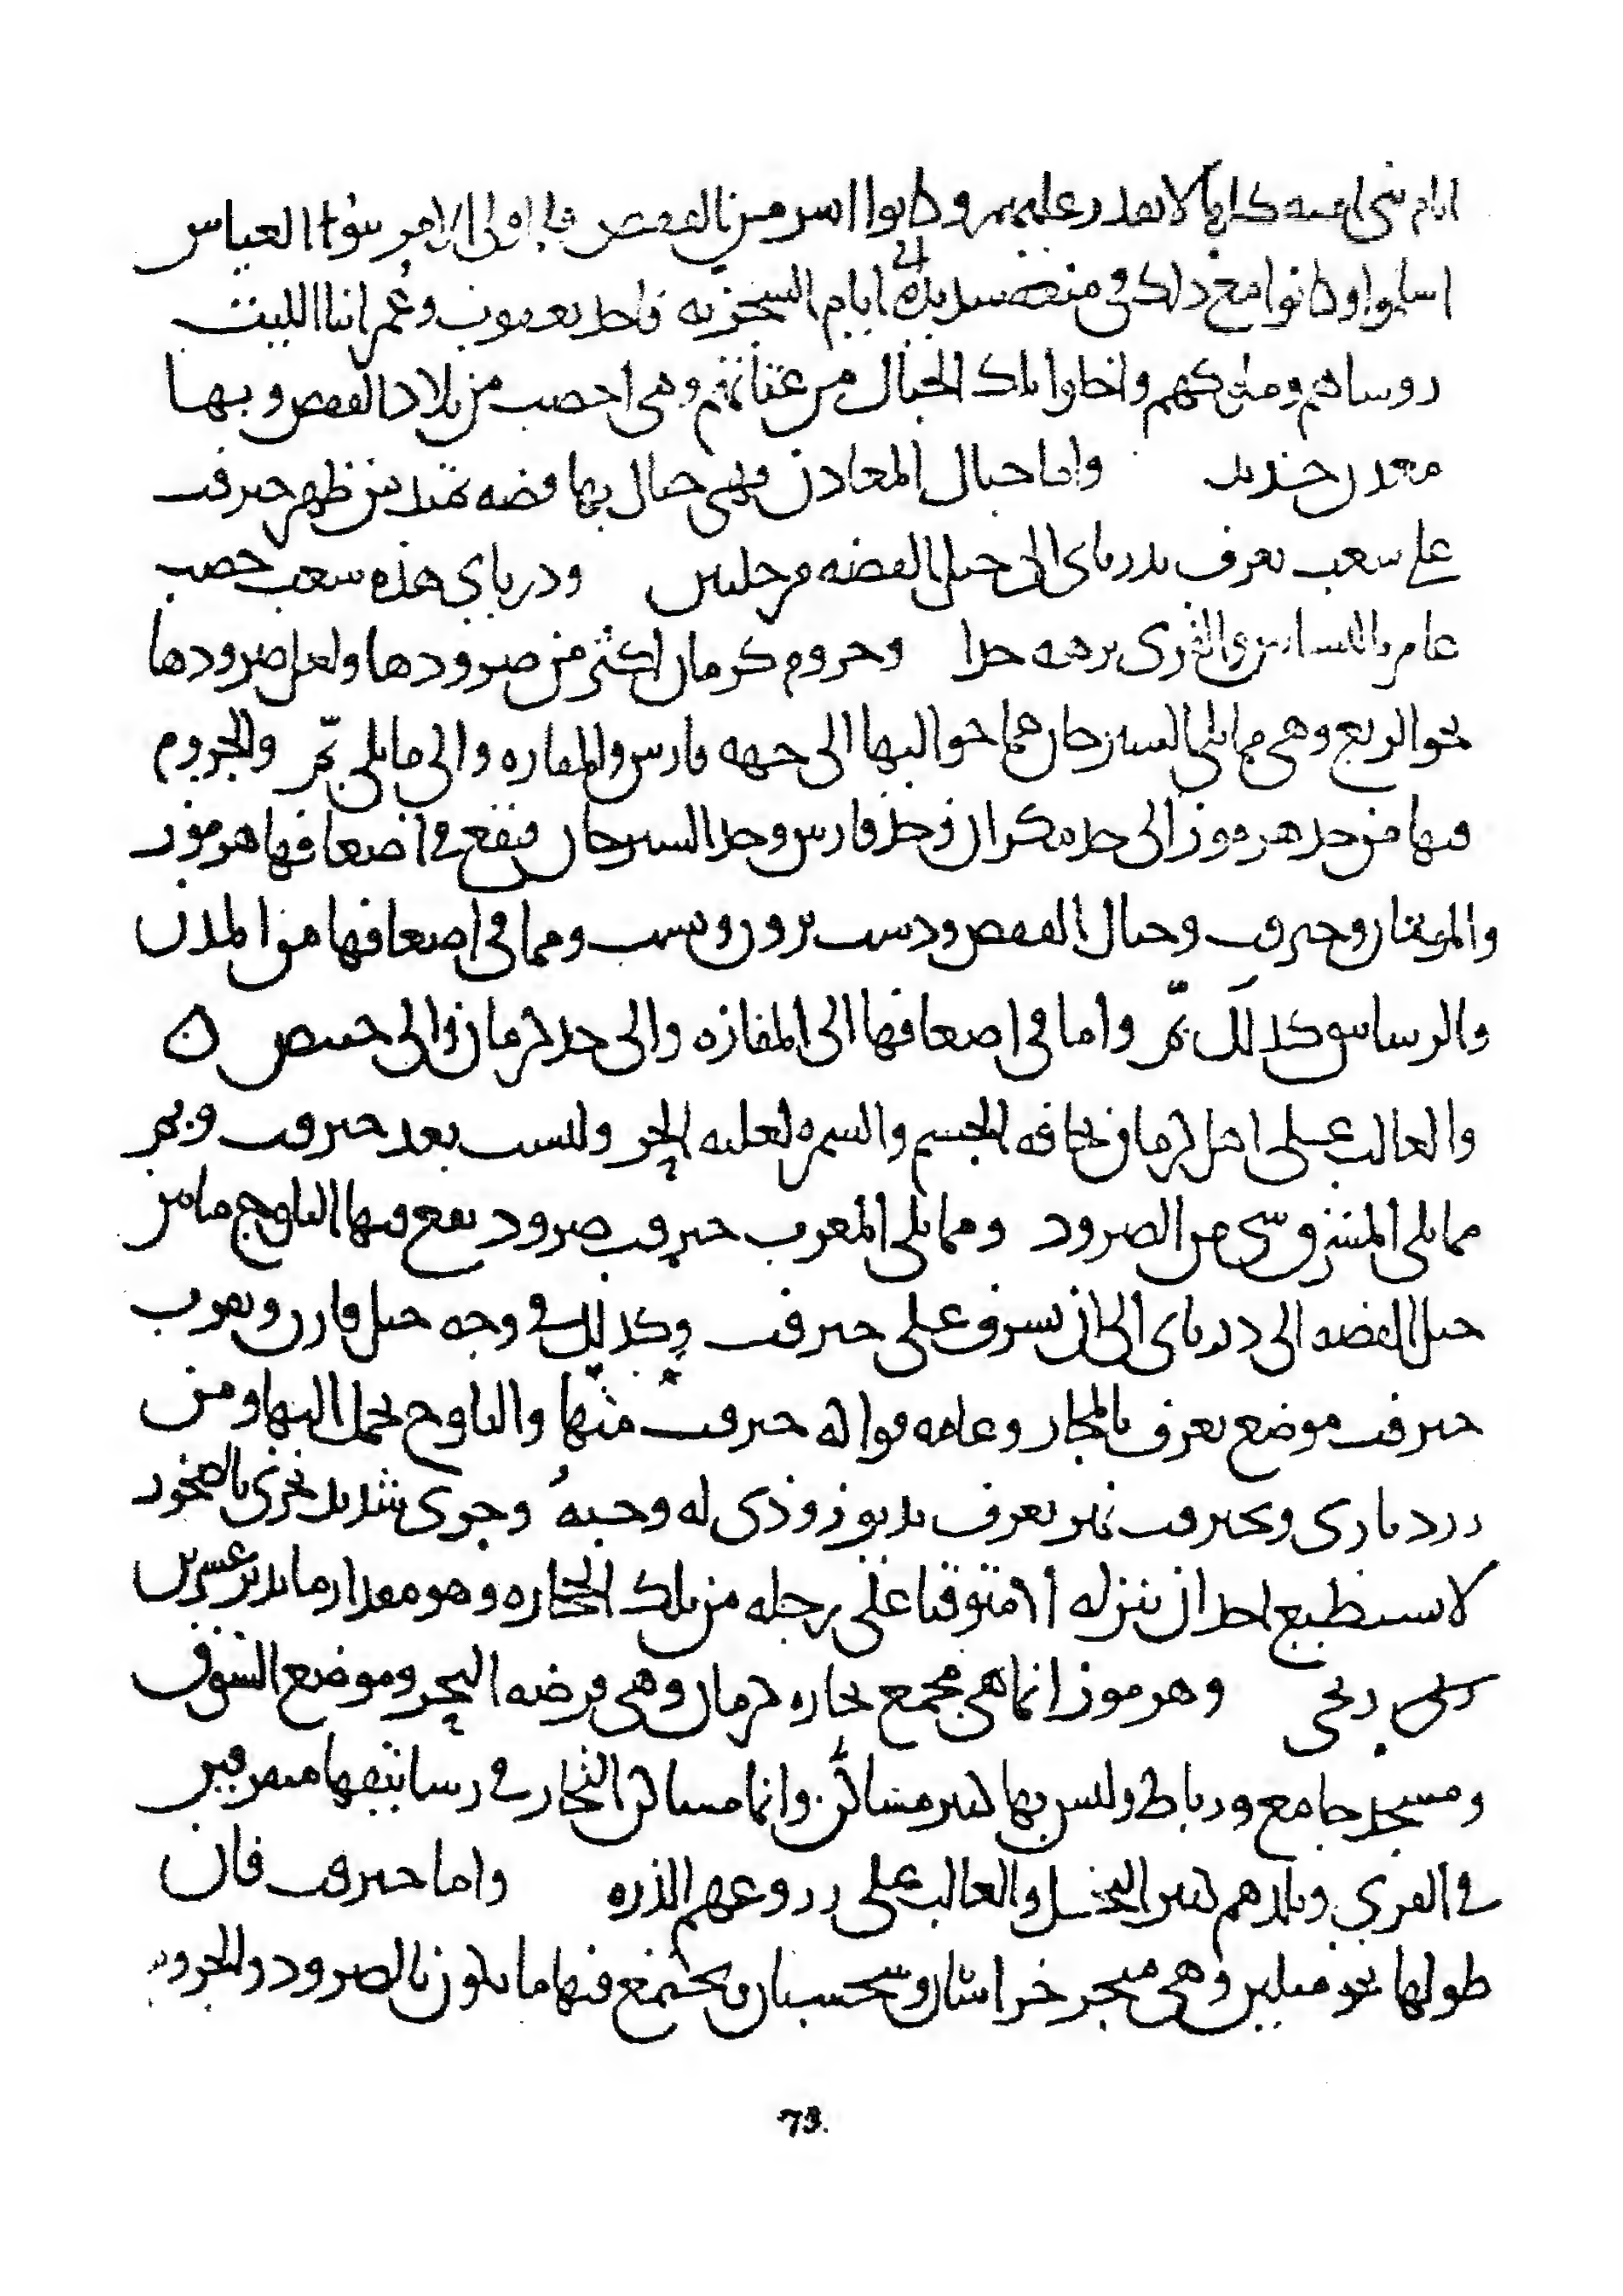 ايام بني اميه كلها لا يقدر عليهم وكانوا اشر من القفص فلما ولى الامر بنوا العباس
اسلموا وكانوا مع ذلك في منعه شديدة الى ايام السجزيه فاخذ يعقوب وعمر ابنا الليث
روساهم وملوكهم واخلوا تلك الجبال من عتاتهم وهي اخصب من بلاد القفص وبها
معدن حديد واما جبال المعادن فهي جبال بها فضه تمتد من ظهر جيرفت
على شعب يعرف بدرباى الى جبل الفضه مرحلتين ودرباي هذه شعب خصب
عامر بالبساتين والقرى نزهه جدا وجروم كرمان اكثر من صرودها ولعل صرودها
نحو الربع وهي مما يلي السيرجان مما حواليها الى جهه فارس والمفازه والى ما يلي بم والجروم
فيها من حد هرموز الى حد مكران وحد فارس وحد السيرجان فيقع في اضعافها هرموز
والمنوقان وجيرفت وجبال القفص ودست بر وروبست ومما في اضعافها من المدن
والرساتيق كذلك بم واما في اضعافها الى المفازه والى حد كرمان والى خبيص
والغالب على اهل كرمان نحافه الجسم والسمره لغلبه الحر وليست بعد جيرفت وبم
مما يلى المشرق شي من الصرود ومما يلى المغرب جيرفت صرود يقع فيها الثلوج ما بين
جبل الفضه الى درباى الى ان يشرف على جيرفت وكذلك في وجه جبل قارن وبقرب
جيرفت موضع يعرف بالميجان وعامه فواكه جيرفت منها والثلوج يحمل اليها ومن
درباري وبجيرفت نهر يعرف بديوروذى له وجبه وجرى شديد يجري بالصخور
لا يستطيع احد ان ينزله الا متوقيا على رجله من تلك الحجاره وهو مقدار ما يدير عشرين
رحى وهرموز انما هي مجمع تجاره كرمان وهي فرضه البحر وموضع السوق
ومسجد جامع ورباط وليس بها كثير مساكن وانما مساكن التجار في رساتيقها متفرقين
في القرى وبلدهم كثير النخل والغالب على زروعهم الذره واما جيرفت فان
طولها نحو ميلين وهي متجر خراسان وسجستان ويجتمع فيها ما يكون بالصرود والجروم
73.